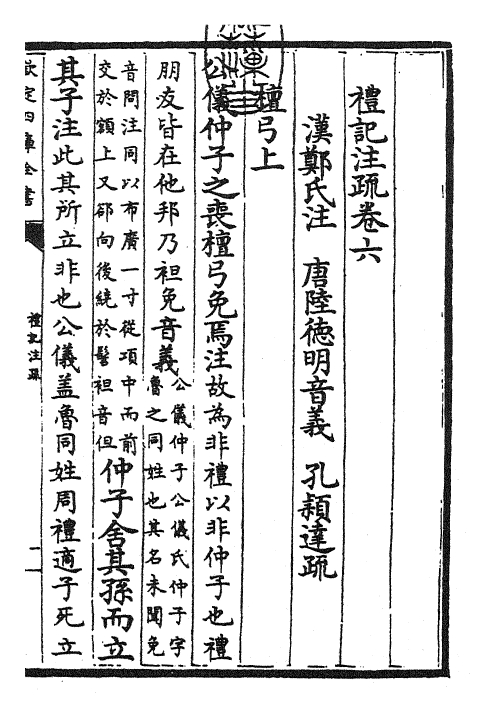 禮記注疏卷六
漢鄭氏注　唐陸德明音義　孔穎達疏
檀弓上
公儀仲子之喪檀弓免焉注故為非禮以非仲子也禮
朋友皆在他邦乃袒免音義公儀仲子公儀氏仲子字
魯之同姓也其名未聞免
音問注同以布廣一寸從項中而前
交於額上又郤向後繞於髻袒音但
仲子舍其孫而立
其子注此其所立非也公儀盖魯同姓周禮適子死立
欽定四庫全書
禮記注疏